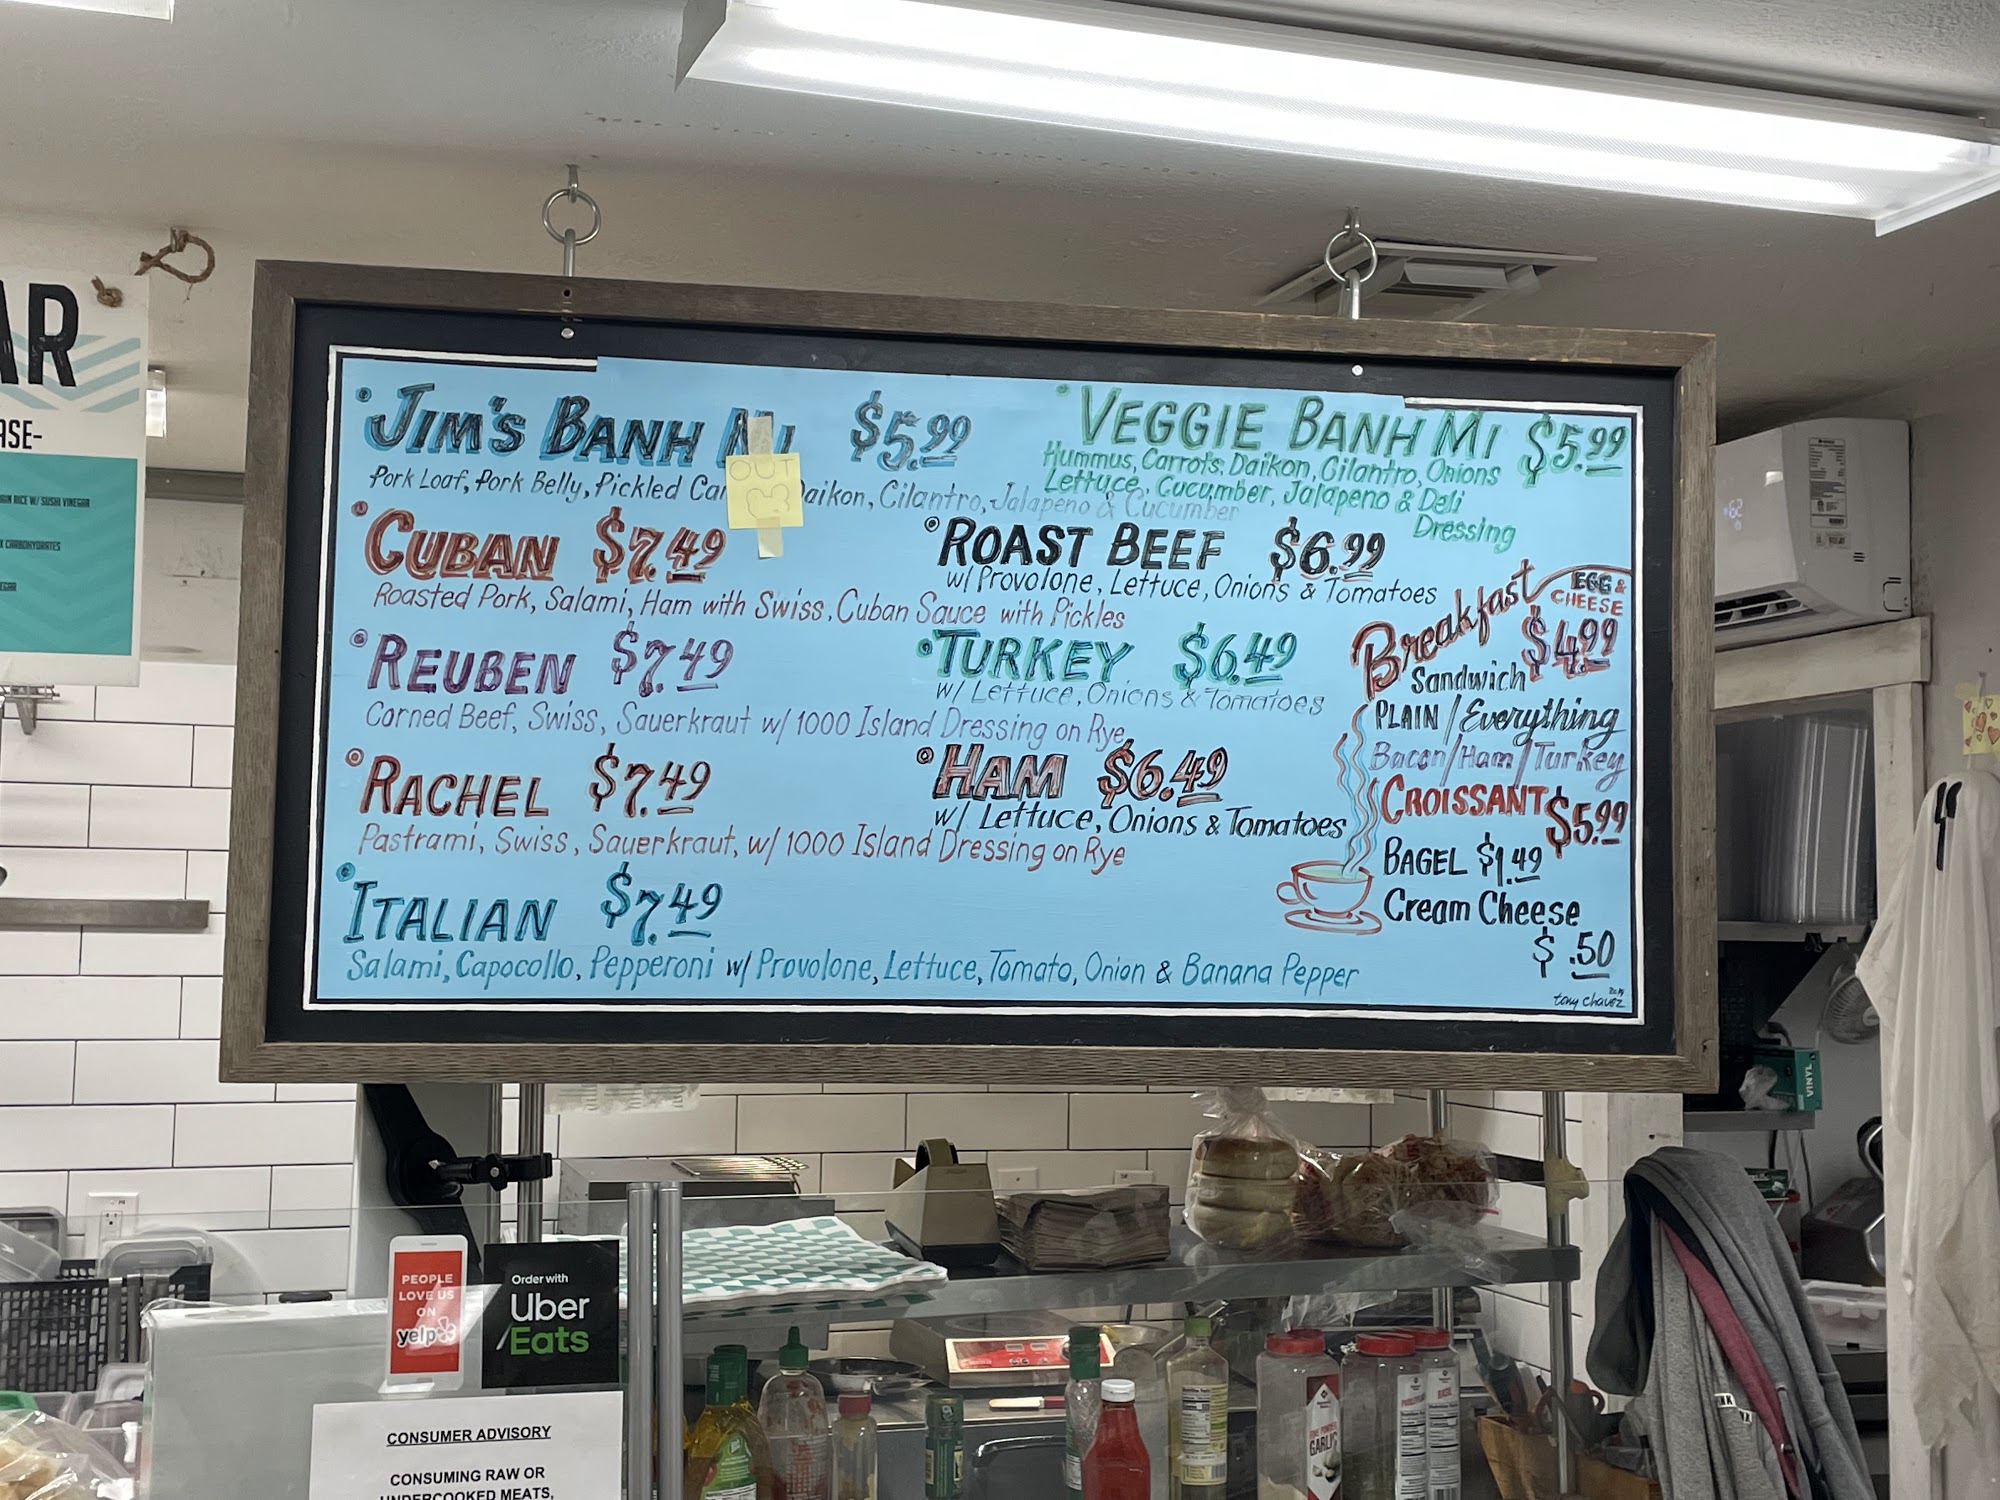 AR
ASE-
AIN RICE W/ SUSHI VINEGAR
X CARBOHYDRATES
EGAR
JIM'S BANH MI $5.99
Pork Loaf, Pork Belly, Pickled Car Daikon, Cilantro, Jalapeno & Cucumber
OUT
CUBAN $7.49
Roasted Pork, Salami, Ham with Swiss, Cuban Sauce with Pickles
REUBEN $7.49
Corned Beef, Swiss, Sauerkraut w/ 1000 Island Dressing on Rye
RACHEL $7.49
Pastrami, Swiss, Sauerkraut, w/ 1000 Island Dressing on Rye
ITALIAN $7.49
Salami, Capocollo, Pepperoni w/ Provolone, Lettuce, Tomato, Onion & Banana Pepper
VEGGIE BANH MI $5.99
Hummus, Carrots, Daikon, Cilantro, Onions
Lettuce, Cucumber, Jalapeno & Deli
Dressing
ROAST BEEF $6.99
w/ Provolone, Lettuce, Onions & Tomatoes
TURKEY $6.49
w/ Lettuce, Onions & Tomatoes
HAM $6.49
w/ Lettuce, Onions & Tomatoes
Breakfast EGG &
CHEESE
Sandwich $4.99
PLAIN / Everything
Bacon/Ham/Turkey
CROISSANT $5.99
BAGEL $1.49
Cream Cheese
$.50
tony chavez
62
VINYL
PEOPLE
LOVE US
ON
yelp
Order with
Uber
Eats
CONSUMER ADVISORY
CONSUMING RAW OR
UNDERCOOKED MEATS,
GARLIC